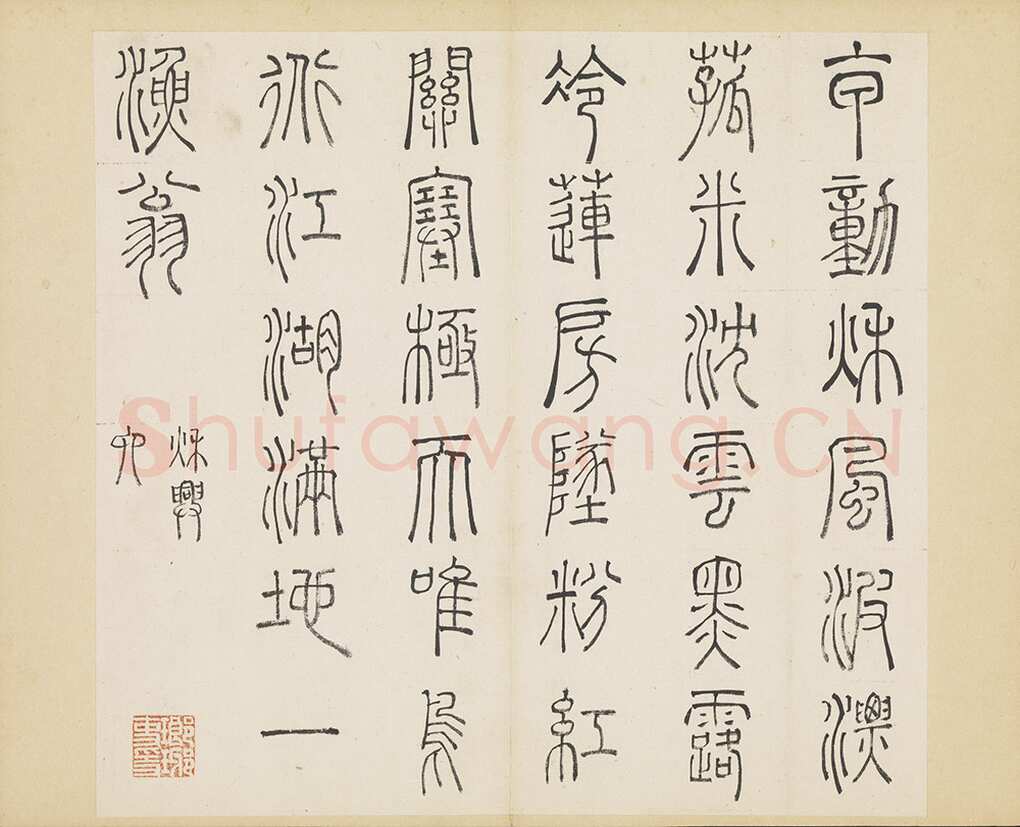 甲動秌風波漂
菰米沈雲黑露
冷蓮房墜粉紅
關塞極天唯鳥
道江湖滿地一
漁翁
秌興
Shufawang.CN